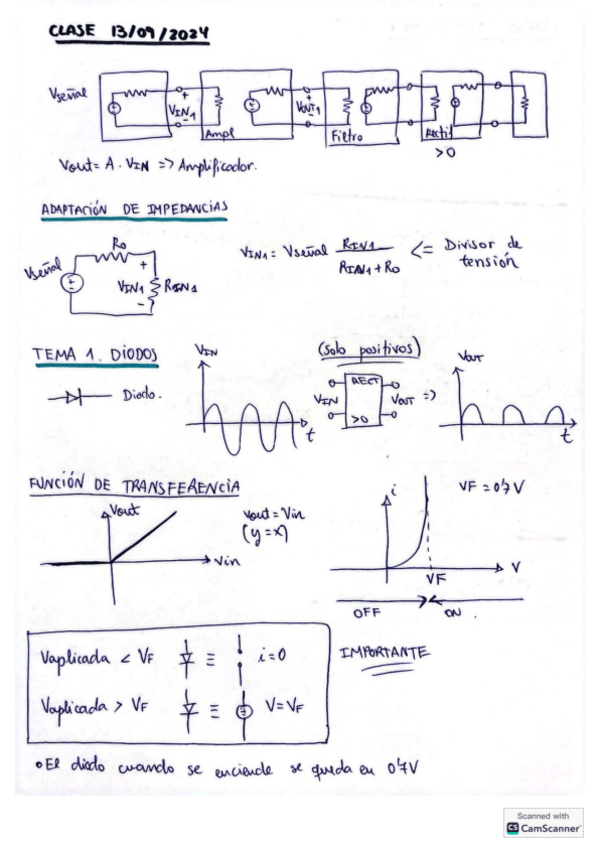 CLASE 13/09/2024
Vseñal
VIN1
VOUT1
Ampl
Filtro
Rectif
>0
Vout = A · VIN => Amplificador.
ADAPTACIÓN DE IMPEDANCIAS
Vseñal
Ro
+
VIN1
RIN1
-
VIN1 = Vseñal RIN1 / RIN1 + Ro <= Divisor de tensión
TEMA 1. DIODOS
Diodo.
VIN
t
(solo positivos)
RECT
VIN
VOUT =>
>0
VOUT
t
FUNCIÓN DE TRANSFERENCIA
Vout
Vin
Vout = Vin
(y=x)
i
VF = 0'7 V
V
VF
OFF
ON
Vaplicada < VF ≡ i=0
IMPORTANTE
Vaplicada > VF ≡ V=VF
• El diodo cuando se enciende se queda en 0'7V
Scanned with
CS CamScanner